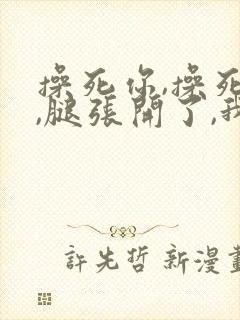 操死你,操死
,腿張開了,我
許先哲 新漫畫